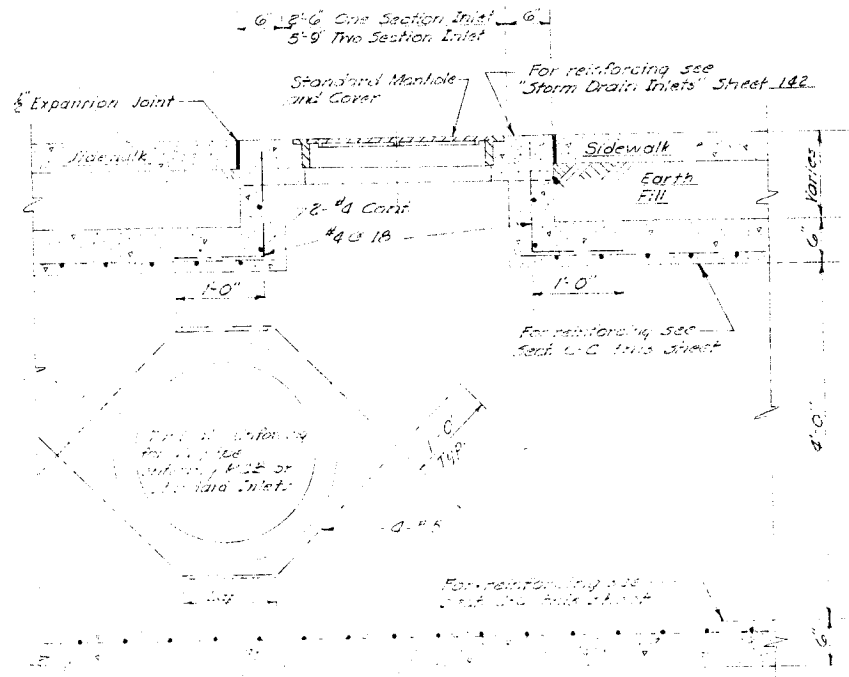 6" 2'-6" One Section Inlet 6"
5'-9" Two Section Inlet
Standard Manhole
and Cover
For reinforcing see
"Storm Drain Inlets" Sheet 142
½" Expansion Joint
Sidewalk
Sidewalk
Earth
Fill
Varies
2-#4 Cont.
#4 @ 18
6"
1'-0"
1'-0"
For reinforcing see
Sect. C-C this sheet
4'-0"
1'-0"
TYP.
for
or
Inlets
4-#5
For reinforcing see
this sheet
6"